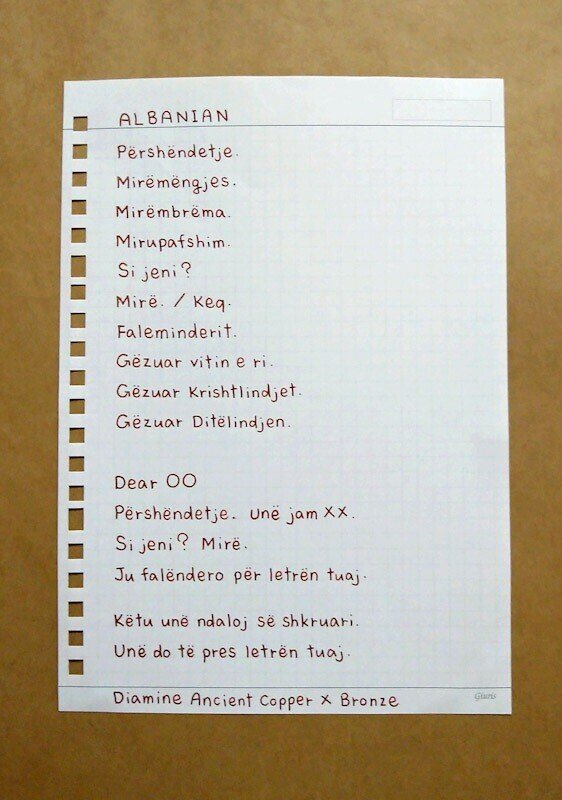 ALBANIAN
Përshëndetje.
Mirëmëngjes.
Mirëmbrëma.
Mirupafshim.
Si jeni?
Mirë. / Keq.
Faleminderit.
Gëzuar vitin e ri.
Gëzuar Krishtlindjet.
Gëzuar Ditëlindjen.
Dear OO
Përshëndetje. Unë jam XX.
Si jeni? Mirë.
Ju falëndero për letrën tuaj.
Këtu unë ndaloj së shkruari.
Unë do të pres letrën tuaj.
Diamine Ancient Copper x Bronze